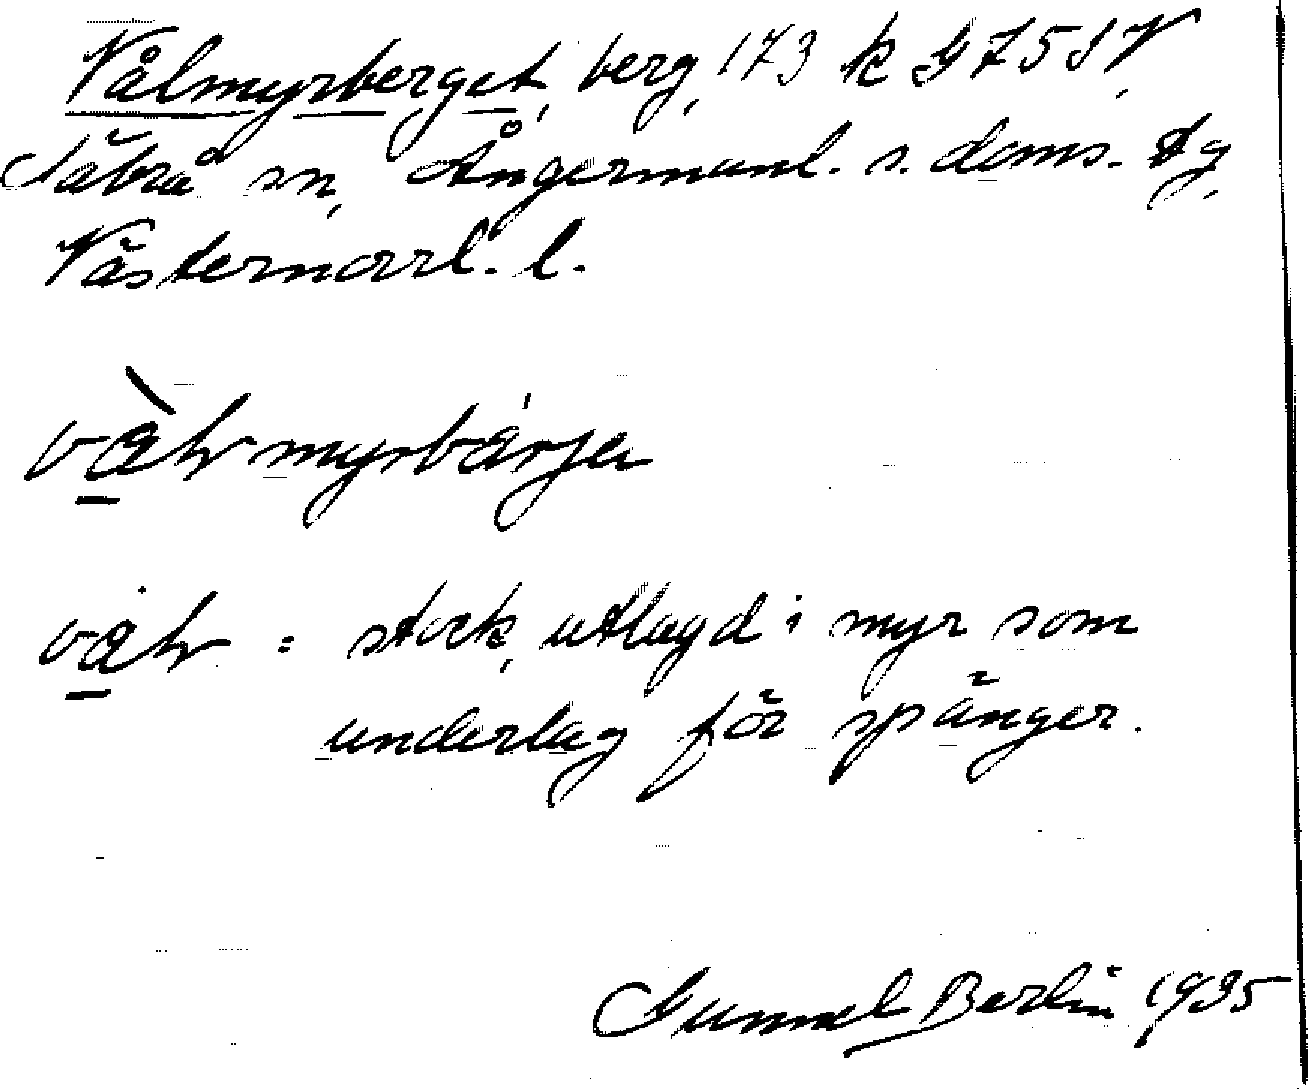 Vålmyrberget, berg, 173 k G7517,
Säbrå sn, Ångermanl. s. doms. tg,
Västernorrl. l.
myrbärje
= stock, utlagd i myr som
underlag för spänger.
Gunnel Berlin 1935